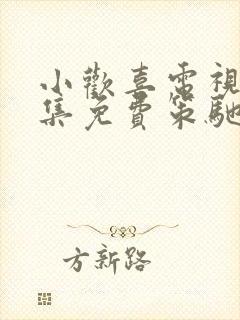 小歡喜電視
集免費策馳
方新路